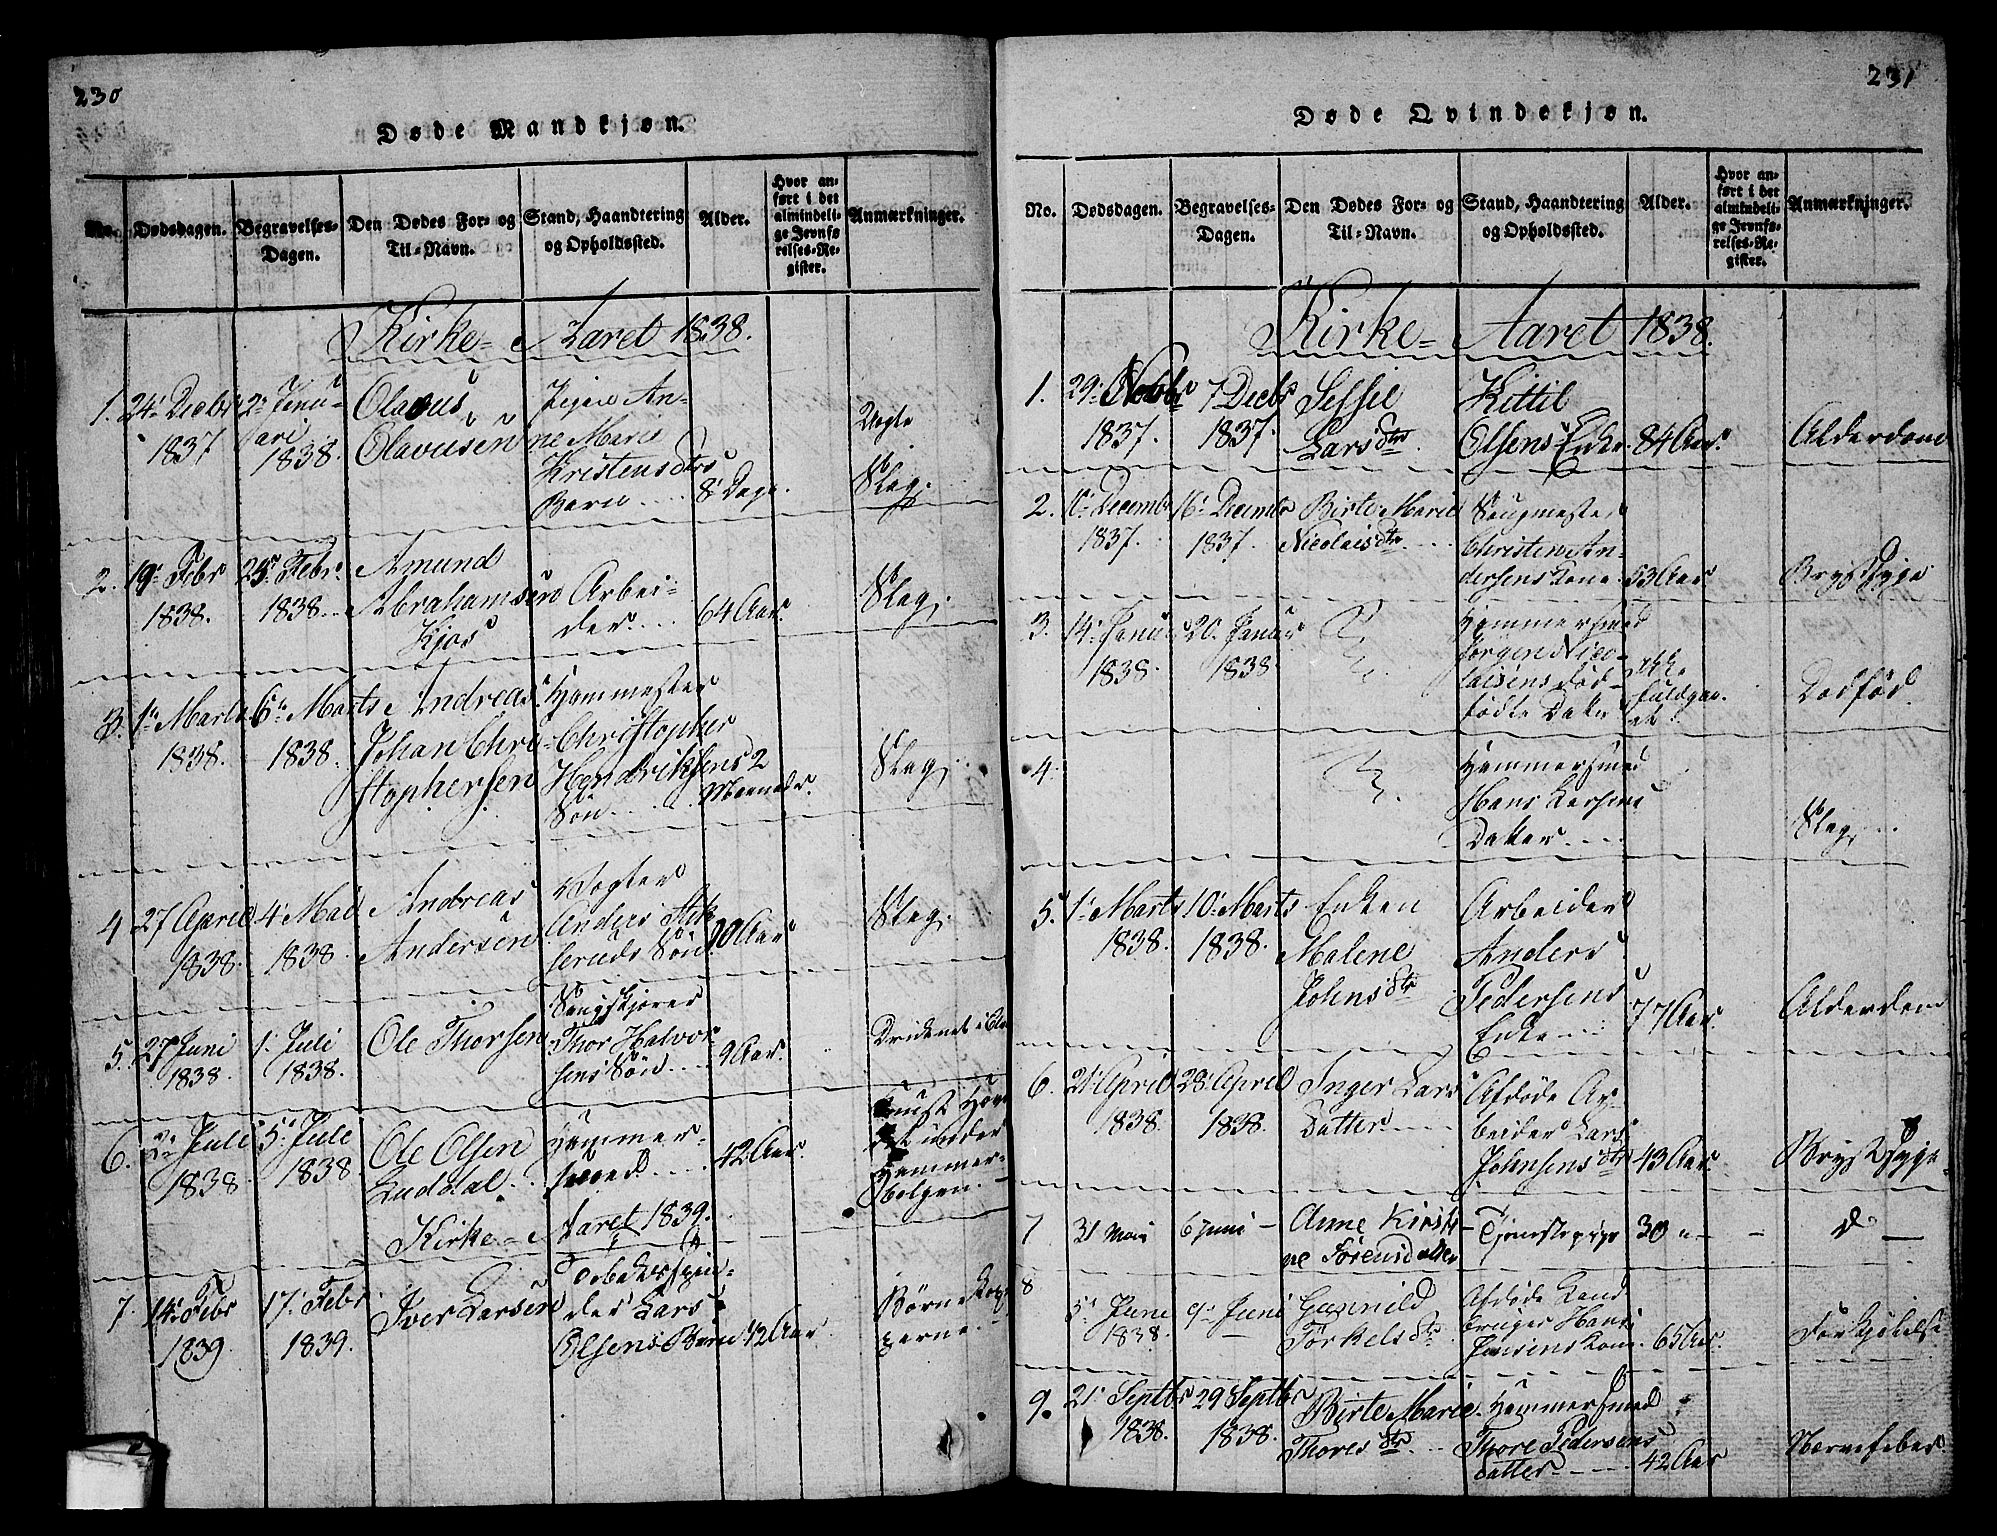 230
Døde Mandkjøn.
No.
Dødsdagen.
Begravelses-
Dagen.
Den Dødes For- og
Til-Navn.
Stand, Haandtering
og Opholdssted.
Alder.
Hvor an-
ført i det
almindeli-
ge Jevnfø-
relses-Re-
gister.
Anmærkninger.
Kirke-Aaret 1838.
1. 24 Decbr
1837
2 Janu-
ari
1838.
Olavus
Olavusen
Pigen An-
ne Marie
Kristensdtrs
Barn
8 Dage.
Slag.
2. 19 Febr
1838.
25 Febr.
1838.
Amund
Abrahamsen
Kjos
Arbei-
der
64 Aar.
Slag.
3. 1 Marts
1838.
6 Marts
1838.
Andreas
Johan Chri-
stophersen
Christopher
Hendriksens
Søn
2
Maaneder
Slag
4 27 April
1838.
4 Mai
1838.
Andreas
Andersen
Vogter
Anders
Søn
Slag.
5. 27 Juni
1838.
1. Juli
1838.
Ole Thorsen
Thor Halvor-
sens Søn
9 Aar.
6. 2 Juli
1838
5. Juli
1838
Ole Olsen
Luddal.
Hammer-
smed
42 Aar.
under
Hammer-
Kirke-Aaret 1839.
7. 14 Febr
1839
17. Febr
1839.
Iver Larsen
Lars
Olsens Barn
12 Aar.
Børnekop-
perne
231
Døde Qvindekjøn.
No.
Dødsdagen.
Begravelses-
Dagen.
Den Dødes For- og
Til-Navn.
Stand, Haandtering
og Opholdssted.
Alder.
Hvor an-
ført i det
almindeli-
ge Jevnfø-
relses-Re-
gister.
Anmærkninger.
Kirke-Aaret 1838.
1. 29 Novbr
1837.
7 Decbr
1837.
Sessie
Larsdtr.
Kittil
Olsens Enke
84 Aar.
Alderdom
2. 10 Decembr
1837.
16 Decembr
1837.
Birte Marie
Nicolaisdtr
Christen An-
dersens Kone
53 Aar
Brystsyge
3. 14 Januar
1838.
20. Januar
1838.
Hammersmed
Jørgen Nico-
laisens død-
fødte Datter
ikke
fuldgaa-
et
Dødfød.
4.
Hammersmed
Hans Larsens
Datter
Slag
5. 1 Marts
1838.
10 Marts
1838.
Enken
Malene
Johnsdtr
Arbeider
Anders
Pedersens
Enke
77 Aar.
Alderdom
6. 21 April
1838.
28 April
1838.
Inger Lars
Datter
Afdøde Ar-
beider Lars
Johnsens dtr
43 Aar.
Brystsyge
7 31 Mai
6 Juni -
Anne Kirsti-
ne Sørensdatter
Tjenestepige
30 " -
d -
8
5 Juni
1838.
9 Juni
Gunnild
Torkelsdtr
Afdøde Land-
bruger Hans
Jensens Kone
65 Aar.
Forkjølelse
9. 21 Septbr
1838.
29 Septbr
1838.
Birte Marie
Thoresdtr
Hammersmed
Thore Pedersens
Datter
42 Aar
Nervefeber